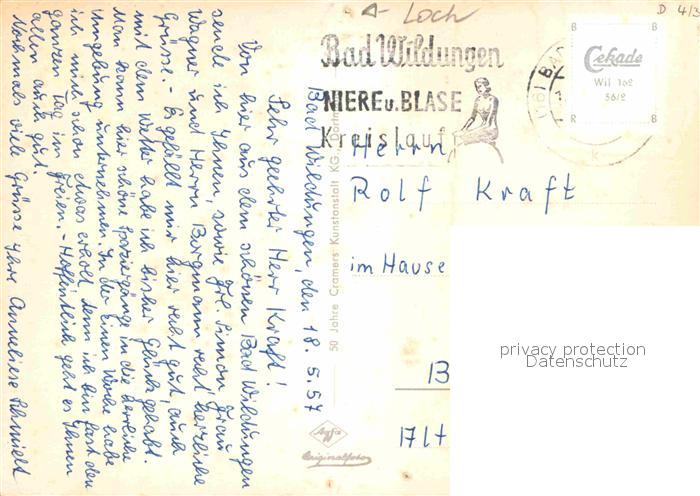 Bad Wildungen, den 18.5.57
Sehr geehrter Herr Kraft!
Von hier aus dem schönen Bad Wildungen
sende ich Ihnen, sowie Frl. Simon, Frau
Wagner und Herrn Bergmann recht herzliche
Grüsse. - Es gefällt mir hier recht gut, auch
mit dem Wetter habe ich bisher Glück gehabt.
Man kann hier schöne Spaziergänge in die herrliche
Umgebung unternehmen. In der einen Woche habe
ich mich schon etwas erholt, denn ich bin fast den
ganzen Tag im Freien. - Hoffentlich geht es Ihnen
allen auch gut.
Nochmals viele Grüsse Ihre Anneliese Schmidt
50 Jahre Cramers Kunstanstalt KG.
Agfa
Originalfoto
Loch
D 4/3
Bad Wildungen
NIERE u. BLASE
Kreislauf
(16) BAD
k
B B
Cekade
Wil 102
56/2
R R
Herrn
Rolf Kraft
im Hause
B
171t
privacy protection
Datenschutz